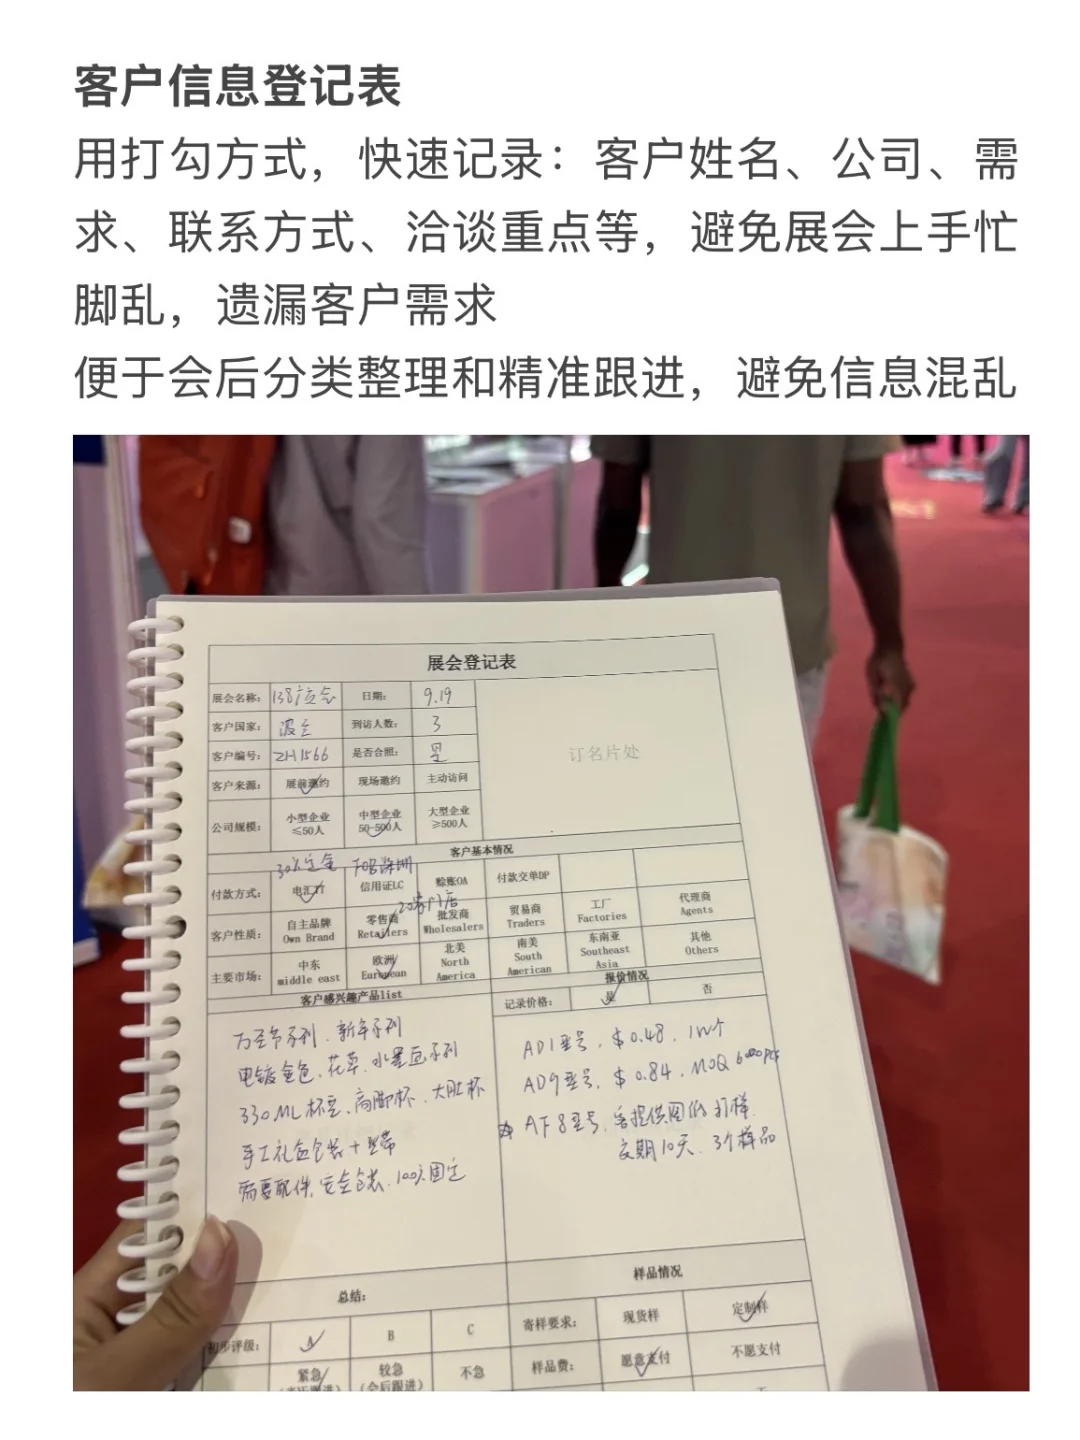 客户信息登记表
用打勾方式，快速记录：客户姓名、公司、需
求、联系方式、洽谈重点等，避免展会上手忙
脚乱，遗漏客户需求
便于会后分类整理和精准跟进，避免信息混乱
展会登记表
展会名称： 138广交会 日期： 9.19
客户国家： 波兰 到访人数： 3
订名片处
客户编号： ZH1566 是否合照： 是
客户来源： 展前邀约 现场邀约 主动访问
公司规模： 小型企业 ≤50人 中型企业 50-500人 大型企业 ≥500人
客户基本情况
30%定金 FOB深圳
付款方式： 电汇TT 信用证LC 赊账OA 付款交单DP
20家门店
客户性质： 自主品牌 Own Brand 零售商 Retailers 批发商 Wholesalers 贸易商 Traders 工厂 Factories 代理商 Agents
主要市场： 中东 middle east 欧洲 European 北美 North America 南美 South American 东南亚 Southeast Asia 其他 Others
客户感兴趣产品list
万圣节系列、新年系列
电镀金色、花草、水墨画系列
330ML杯子、高脚杯、大肚杯
手工礼盒包装+丝带
需要配件，安全包装，100%固定
报价情况
记录价格： 是 否
AD1型号，$0.48，1W个
AD9型号，$0.84，MOQ 6000pcs
☆AF8型号，客提供图纸打样
交期10天，3个样品
总结：
初步评级： A B C
紧急 较急 (会后跟进) 不急
样品情况
寄样要求： 现货样 定制样
样品费： 愿意支付 不愿支付